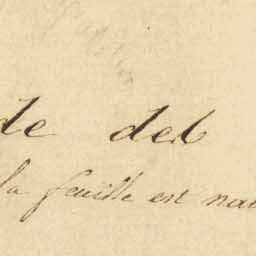 de del
la feuille est